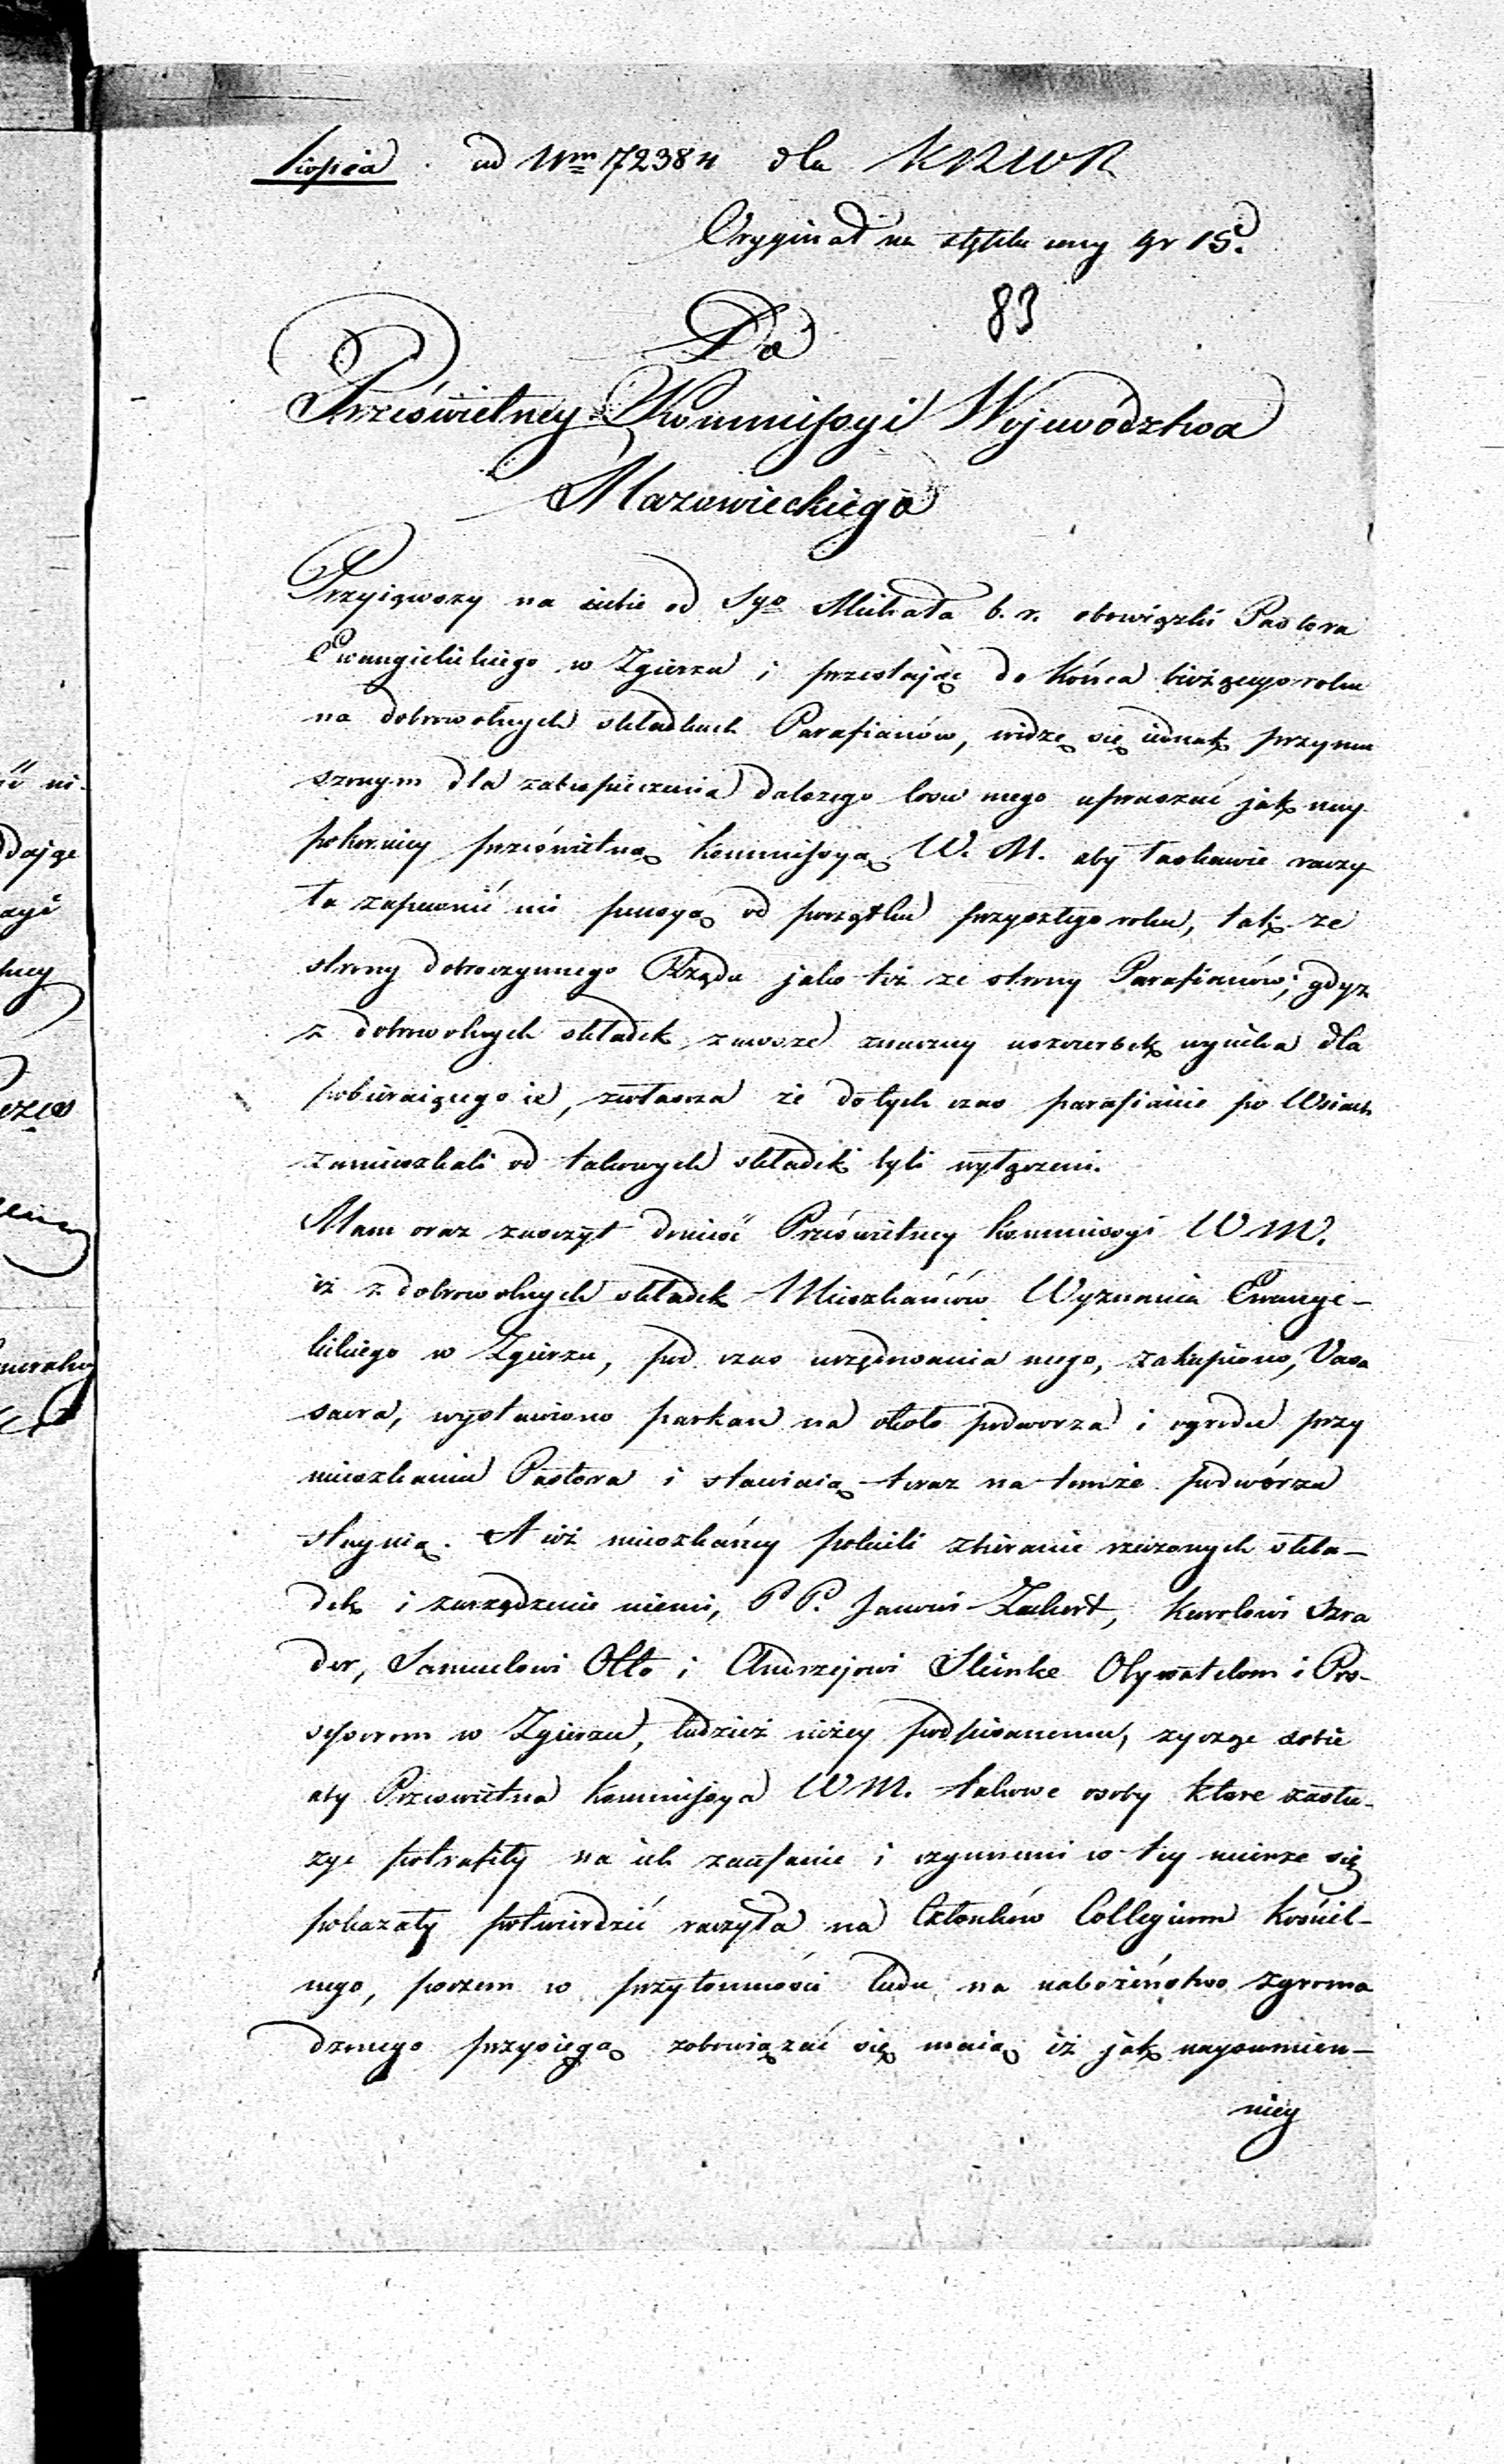 Kopia ad Nrm 72384 dla KRWR
Oryginał na stęplu ceny gr 15.
83
Do
Prześwietney Kommissyi Województwa
Mazowieckiego
Przyiąwszy na siebie od Sgo Michała b. r. obowiązki Pastora
Ewangielickiego w Zgierzu i przestając do końca bieżącego roku
na dobrowolnych składkach Parafianów, widzę się iednak przymu
szonym dla zabespieczenia dalszego losu mego upraszać jak nay
pokorniey prześwietną kommissyą W. M. aby łaskawie raczy
ła zapewnić mi pensyą od początku przyszłego roku, tak ze
strony dobroczynnego Rządu jako też ze strony Parafianów; gdyz
z dobrowolnych składek zawsze znaczny uszczerbek wynika dla
pobieraiącego ie, zwłaszcza że dotych czas parafianie po Wsiach
zamieszkali od takowych składek byli wyłączeni.
Mam oraz zaszczyt donieść Prześwietney Kommissyi WM.
iż z dobrowolnych składek Mieszkańców Wyznania Ewangie-
lickiego w Zgierzu, pod czas urzędowania mego, zakupiono, Vasa
sacra, wystawiono parkan na około podworza i ogrodu przy
mieszkaniu Pastora i stawiaią teraz na temże podwórzu
stajnią. A iż mieszkańcy polecili zbieranie rzeczonych skła-
dek i zarządzenie niemi, PP. Janowi Zachert, Karolowi Szra
der, Samuelowi Otto i Andrzejowi Steinke Obywatelom i Pos-
sessorom w Zgierzu, tudzież niżey podpisanemu, zycząc sobie
aby Prześwietna Kommissya WM. takowe osoby ktore zasłu-
zyć potrafiły na ich zaufanie i czynnemi w tey mierze się
pokazały potwierdzić raczyła na Członków Collegium Kościel-
nego, poczem w przytomności ludu na nabożeństwo zgroma
dzonego przysięgą zobowiązać się maią iż jak naysumien-
niey